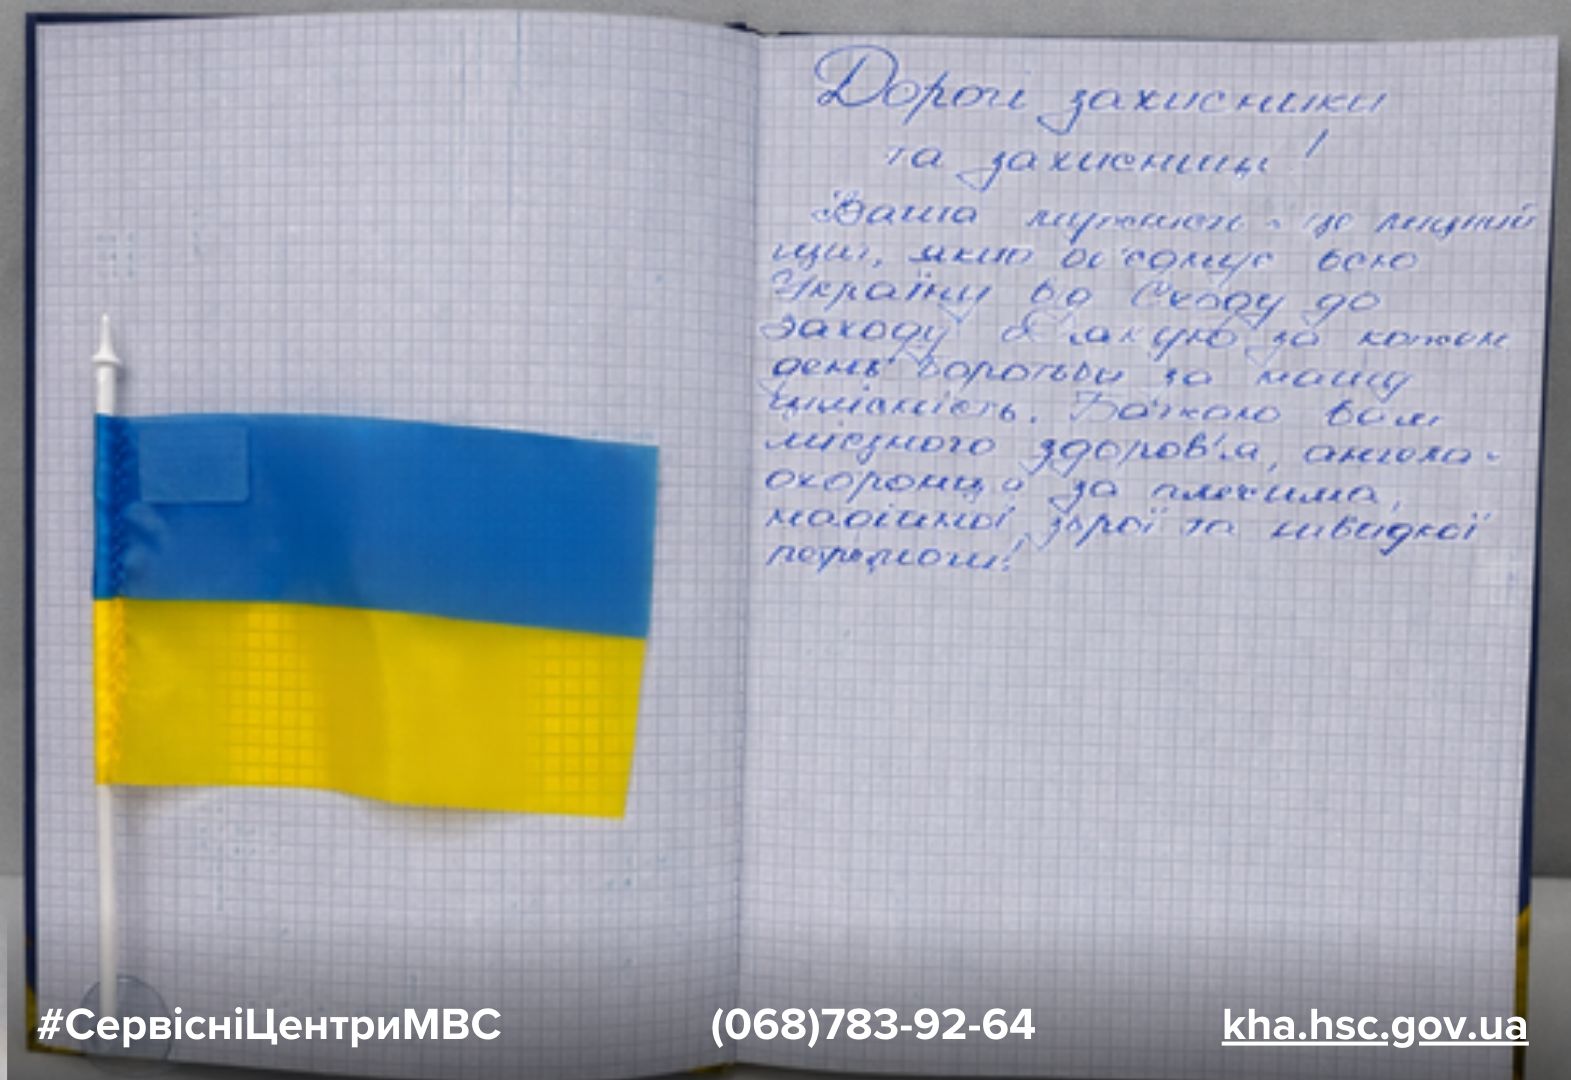 Дорогі захисники
та захисниці!
Ваша мужність - це міцний
щит, який об'єднує всю
Україну від Сходу до
Заходу Дякую за кожен
день боротьби за нашу
цілісність. Бажаю вам
міцного здоров'я, ангела-
охоронця за плечима,
надійної зброї та швидкої
перемоги!
#СервісніЦентриМВС
(068)783-92-64
kha.hsc.gov.ua